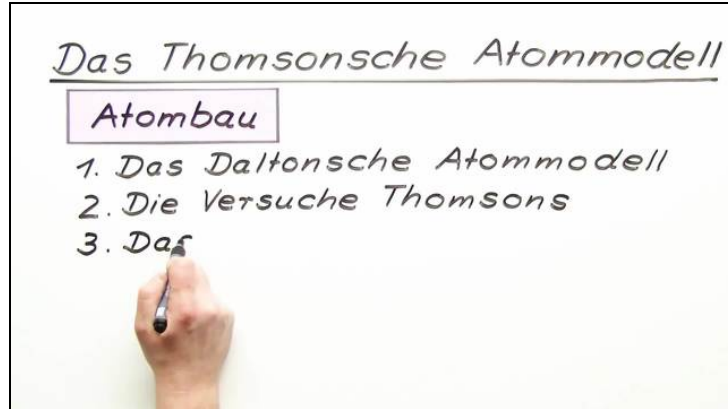 Das Thomsonsche Atommodell
Atombau
1. Das Daltonsche Atommodell
2. Die Versuche Thomsons
3. Das